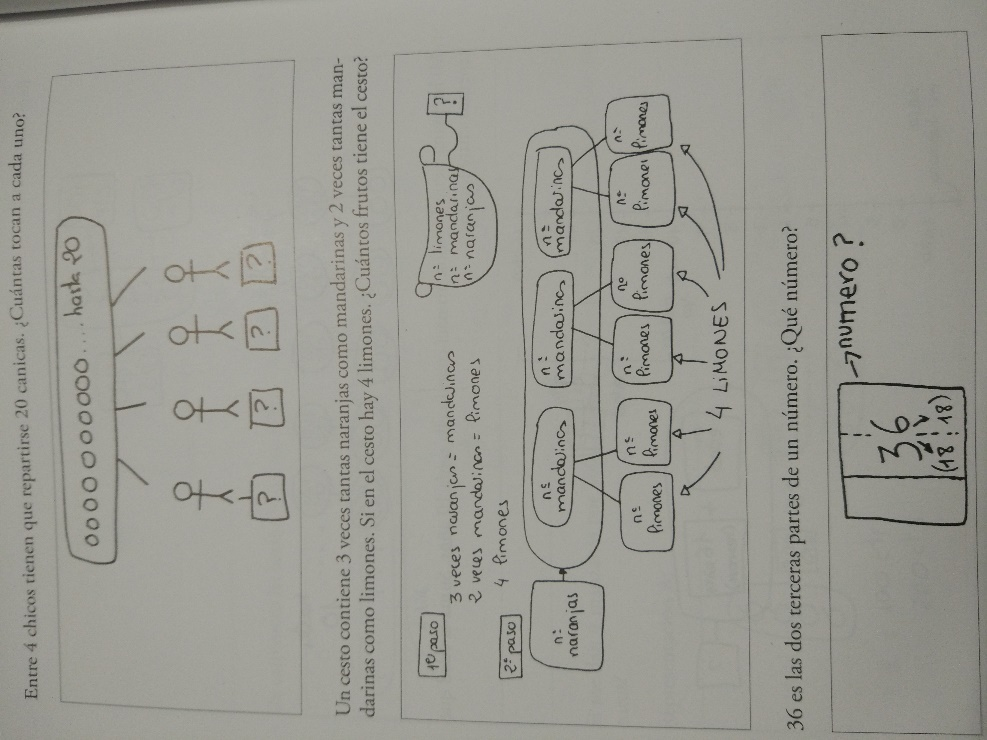 Entre 4 chicos tienen que repartirse 20 canicas. ¿Cuántas tocan a cada uno?
ooooooooooooo.... hasta 20
? ? ? ?
Un cesto contiene 3 veces tantas naranjas como mandarinas y 2 veces tantas man-
darinas como limones. Si en el cesto hay 4 limones. ¿Cuántos frutos tiene el cesto?
1º paso
3 veces naranjas = mandarinas
2 veces mandarinas = limones
4 limones
nº limones
nº mandarinas
nº naranjas
?
2º paso
nº
naranjas
nº
mandarinas
nº
mandarinas
nº
mandarinas
nº
limones
nº
limones
nº
limones
nº
limones
nº
limones
nº
limones
4 LiMONES
36 es las dos terceras partes de un número. ¿Qué número?
numero?
36
(18 18)